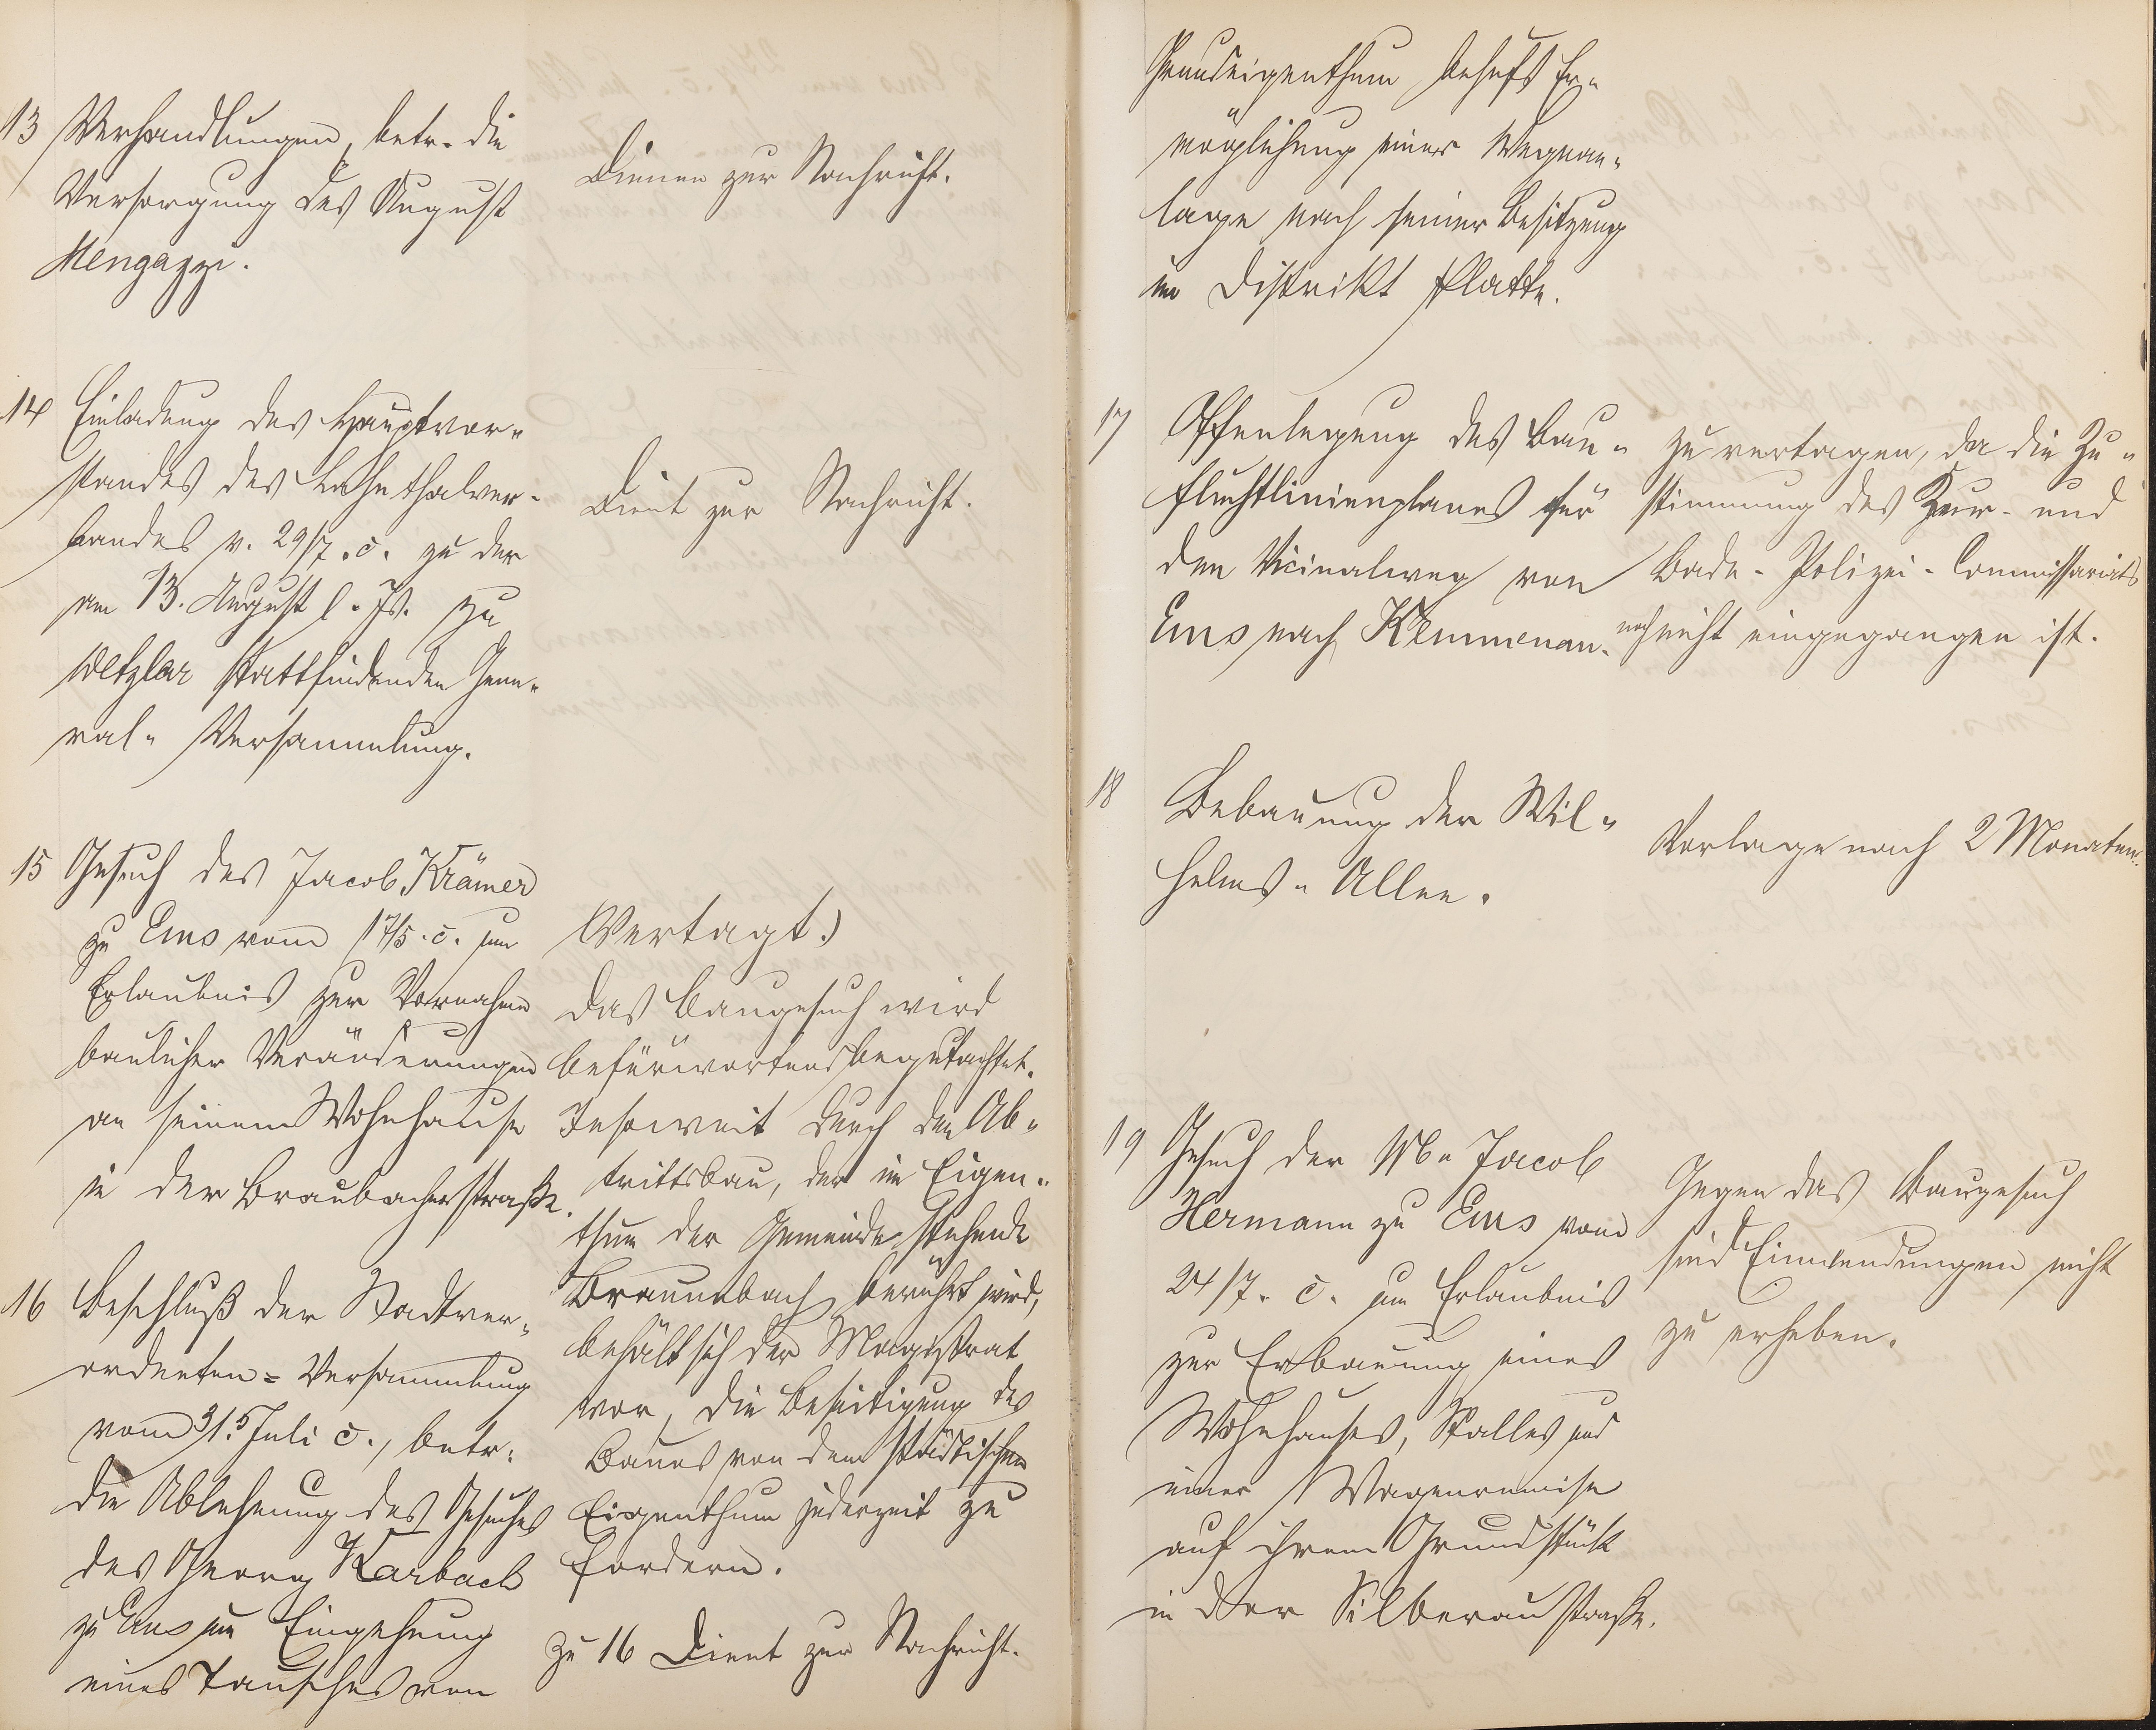 13 Verhandlungen, betr. die
Versorgung des August
Mengazzi.
Dienen zur Nachricht.
14 Einladung des Hauptvor-
standes des Lahnthalver-
bandes v. 29/7. c. zu der
am 13. August l. Js. zu
Wetzlar stattfindenden Gene-
ral-Versammlung.
Dient zur Nachricht.
15 Gesuch des Jacob Krämer
zu Ems vom 17/5. c. um
Erlaubnis zur Vornahme
baulicher Veränderungen
an seinem Wohnhause
in der Braubacherstraße.
Vertagt.)
Das Baugesuch wird
befürwortend begutachtet.
Insoweit durch den Ab-
trittsbau, der im Eigen-
thum der Gemeinde stehende
Braunebach berührt wird,
behält sich der Magistrat
vor, die Beseitigung des
Baues von dem städtischen
Eigenthum jederzeit zu
fordern.
16 Beschluß der Stadtver-
ordneten-Versammlung
vom 31. Juli c., betr.
die Ablehnung des Gesuches
des Georg Karbach
zu Ems um Eingehung
eines Tausches von
zu 16 Dient zur Nachricht.
Grundeigenthum behufs Er-
möglichung einer Wegean-
lage nach seiner Besitzung
im Distrikt Platte.
17 Offenlegung des Bau-
fluchtlinienplanes für
den Vicinalweg von
Ems nach Kemmenau.
zu vertagen, da die Zu-
stimmung des Kur- und
Bade-Polizei-Commissariats
noch nicht eingegangen ist.
18 Bebauung der Wil-
helms-Allee.
Vorlage nach 2 Monaten.
19 Gesuch der Jacob
Hermann zu Ems vom
24/7. c. um Erlaubnis
zur Erbauung eines
Wohnhauses, Stalles und
einer Wagenremise
auf ihrem Grundstück
in der Silberaustraße.
Gegen das Baugesuch
sind Einwendungen nicht
zu erheben.